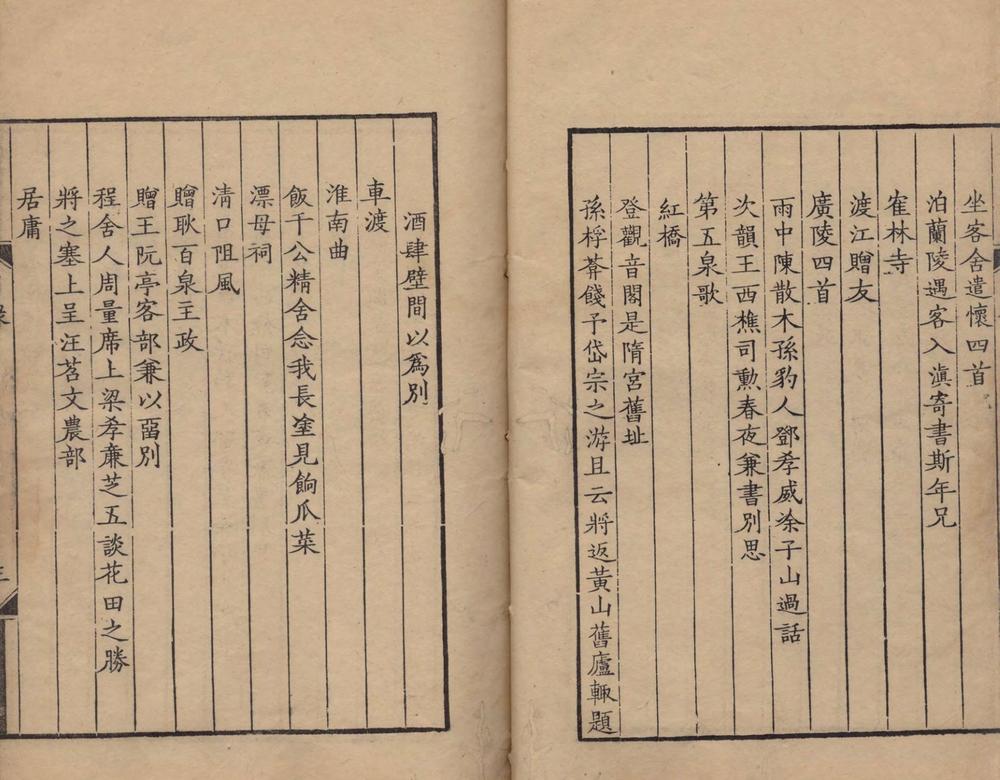 坐客舍遣懷四首
泊蘭陵遇客入滇寄書斯年兄
寉林寺
渡江贈友
廣陵四首
雨中陳散木孫豹人鄧孝威涂子山過話
次韻王西樵司勳春夜兼書別思
第五泉歌
紅橋
登觀音閣是隋宮舊址
孫桴菴餞予岱宗之游且云將返黃山舊廬輙題
酒肆壁間以爲別
車渡
淮南曲
飯千公精舍念我長塗見餉瓜菜
漂母祠
淸口阻風
贈耿百泉主政
贈王阮亭客部兼以畱別
程舍人周量席上梁孝亷芝五談花田之勝
將之塞上呈汪苕文農部
居庸